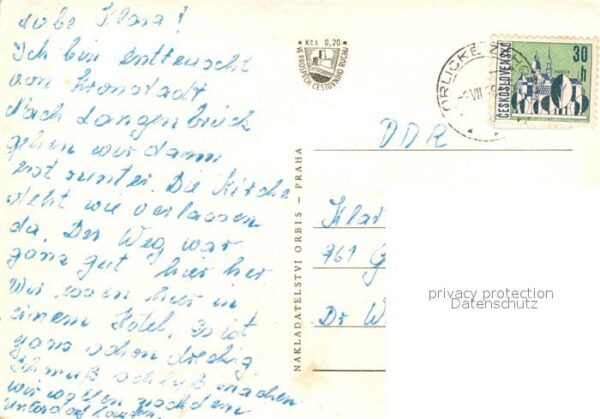 Liebe Klara!
Ich bin entteuscht
von Kronstadt
Nach Langenbrück
gehen wir dann
erst runter. Die Kirche
steht wie verlassen
da. Der Weg war
ganz gut hier her
Wir waren hier in
einem Hotel. Es ist
ganz schön dreckig
Ich muß schluß machen
wir wollen nach dem
Kčs 0,20
VE PROSPĚCH CESTOVNÍHO RUCHU
NAKLADATELSTVÍ ORBIS – PRAHA
ČESKOSLOVENSKO
30 h
DDR
Klar
961 G
Dr W
privacy protection
Datenschutz